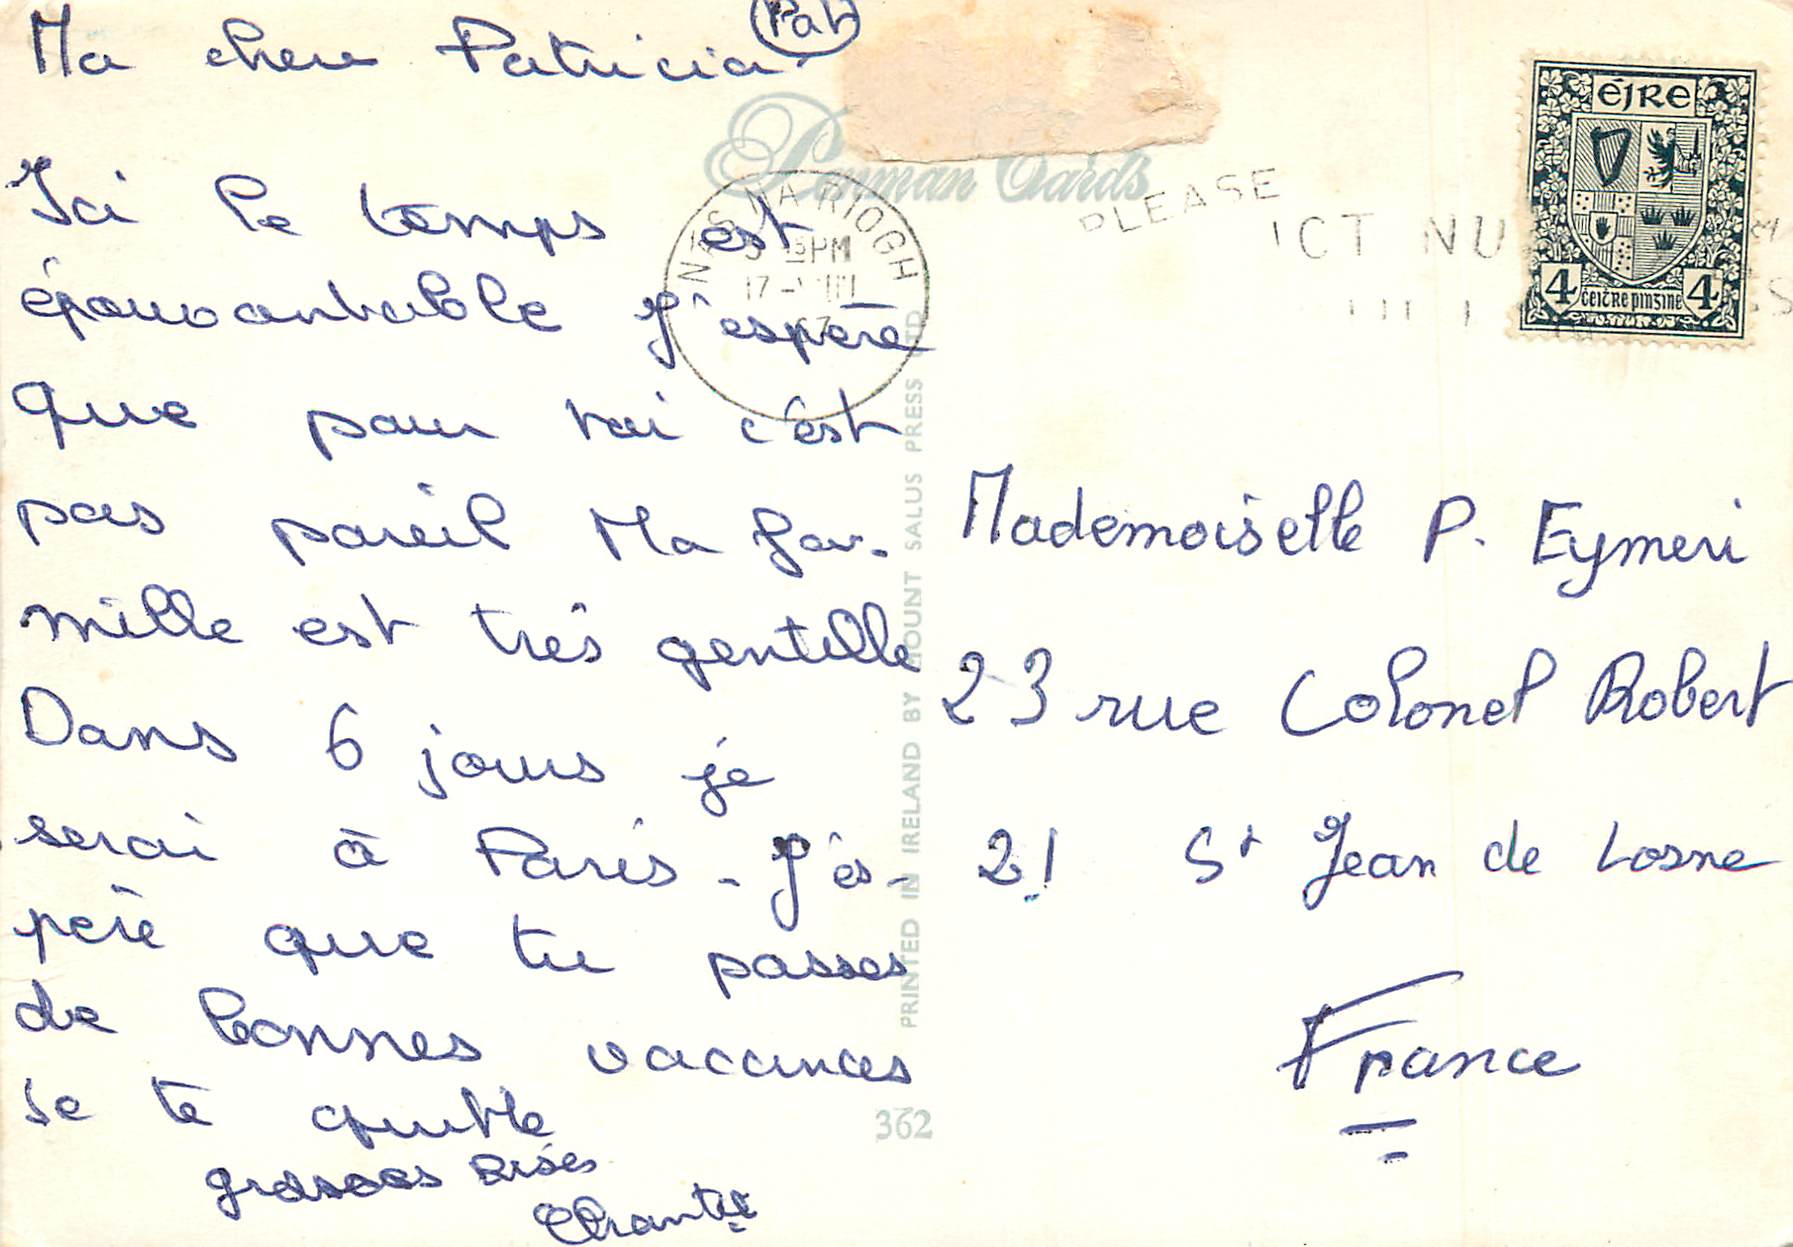 Ma chere Patricia
Pat
Ici le temps est
épouvantable J'espère
que pour toi c'est
pas pareil Ma fa-
mille est très gentille
Dans 6 jours je
serai à Paris - J'es-
père que tu passes
de bonnes vacances
Je te quitte
grosses bises
Mademoiselle P. Eymeri
23 rue Colonel Robert
21 St Jean de Losne
France
Cards
NÁS NA RIOGH
PM
17-VIII
67
PLEASE
ÉIRE
4 ceitre pinsine 4
PRINTED IN IRELAND BY MOUNT SALUS PRESS LTD
362